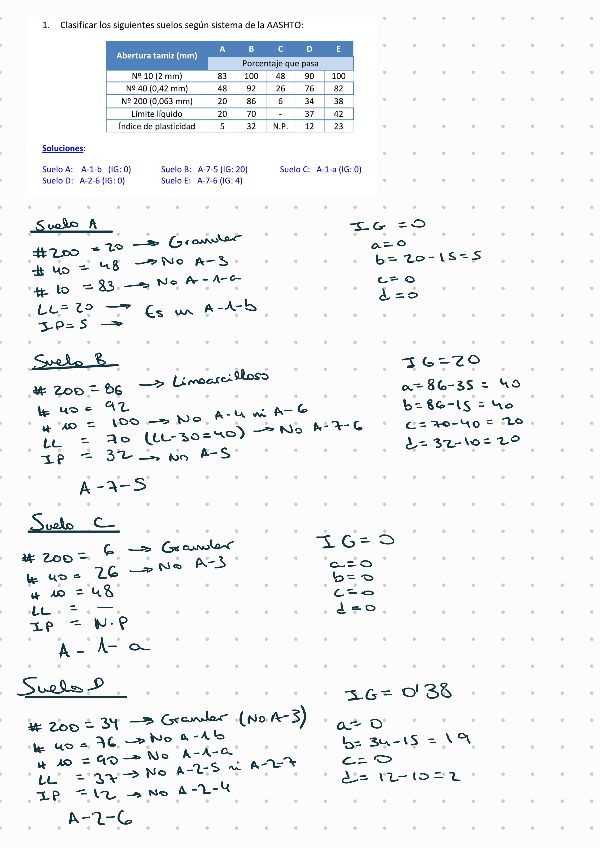 1. Clasificar los siguientes suelos según sistema de la AASHTO:
Abertura tamiz (mm) A B C D E
Porcentaje que pasa
Nº 10 (2 mm) 83 100 48 90 100
Nº 40 (0,42 mm) 48 92 26 76 82
Nº 200 (0,063 mm) 20 86 6 34 38
Límite líquido 20 70 - 37 42
Índice de plasticidad 5 32 N.P. 12 23
Soluciones:
Suelo A: A-1-b (IG: 0) Suelo B: A-7-5 (IG: 20) Suelo C: A-1-a (IG: 0)
Suelo D: A-2-6 (IG: 0) Suelo E: A-7-6 (IG: 4)
Suelo A
#200 = 20 → Granular
# 40 = 48 → No A-3
# 10 = 83 → No A-1-a
LL = 20 → Es un A-1-b
IP = 5 →
IG = 0
a = 0
b = 20-15 = 5
c = 0
d = 0
Suelo B
# 200 = 86 → Limoarcilloso
# 40 = 92
# 10 = 100 → No A-4 ni A-6
LL = 70 (LL-30=40) → No A-7-6
IP = 32 → No A-5
A-7-5
IG = 20
a = 86-35 = 40
b = 86-15 = 40
c = 70-40 = 20
d = 32-10 = 20
Suelo C
# 200 = 6 → Granular
# 40 = 26 → No A-3
# 10 = 48
LL = —
IP = N.P
A-1-a
IG = 0
a = 0
b = 0
c = 0
d = 0
Suelo D
# 200 = 34 → Granular (No A-3)
# 40 = 76 → No A-1b
# 10 = 90 → No A-1-a
LL = 37 → No A-2-5 ni A-2-7
IP = 12 → No A-2-4
A-2-6
IG = 0'38
a = 0
b = 34-15 = 19
c = 0
d = 12-10 = 2